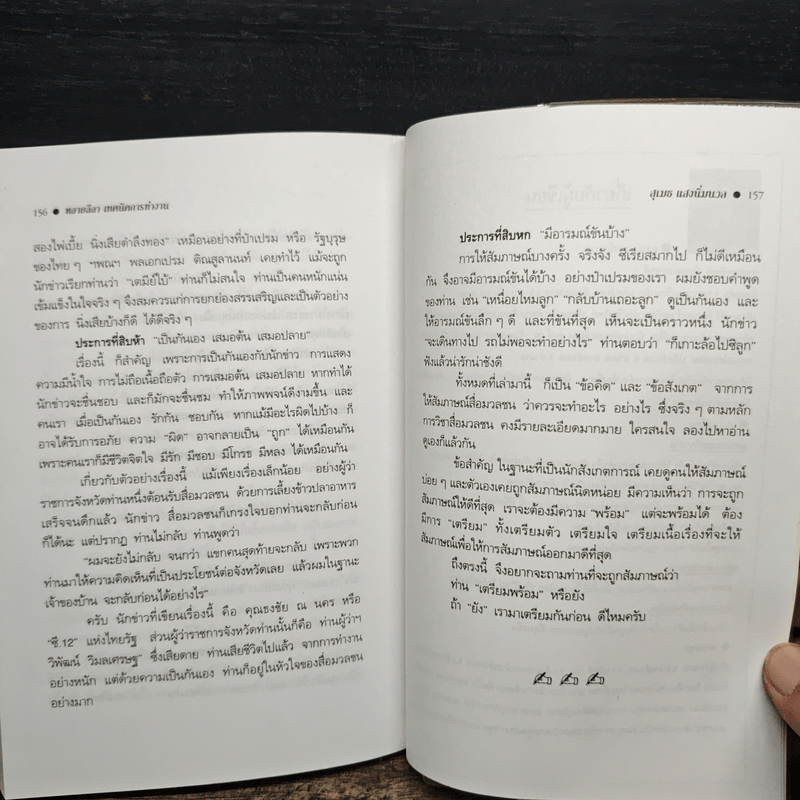 156 ● หลายลีลา เทคนิคการทำงาน
สองไพเบี้ย นิ่งเสียตำลึงทอง" เหมือนอย่างที่ป๋าเปรม หรือ รัฐบุรุษ
ของไทย ๆ ฯพณฯ พลเอกเปรม ติณสูลานนท์ เคยทำไว้ แม้จะถูก
นักข่าวเรียกท่านว่า "เตมีย์ใบ้" ท่านก็ไม่สนใจ ท่านเป็นคนหนักแน่น
เข้มแข็งในใจจริง ๆ จึงสมควรแก่การยกย่องสรรเสริญและเป็นตัวอย่าง
ของการ นิ่งเสียบ้างก็ดี ได้ดีจริง ๆ
ประการที่สิบห้า "เป็นกันเอง เสมอต้น เสมอปลาย"
เรื่องนี้ ก็สำคัญ เพราะการเป็นกันเองกับนักข่าว การแสดง
ความมีน้ำใจ การไม่ถือเนื้อถือตัว การเสมอต้น เสมอปลาย หากทำได้
นักข่าวจะชื่นชอบ และก็มักจะชื่นชม ทำให้ภาพพจน์ดีงามขึ้น และ
คนเรา เมื่อเป็นกันเอง รักกัน ชอบกัน หากแม้มีอะไรผิดไปบ้าง ก็
อาจได้รับการอภัย ความ "ผิด" อาจกลายเป็น "ถูก" ได้เหมือนกัน
เพราะคนเราก็มีชีวิตจิตใจ มีรัก มีชอบ มีโกรธ มีหลง ได้เหมือนกัน
เกี่ยวกับตัวอย่างเรื่องนี้ แม้เพียงเรื่องเล็กน้อย อย่างผู้ว่า
ราชการจังหวัดท่านหนึ่งต้อนรับสื่อมวลชน ด้วยการเลี้ยงข้าวปลาอาหาร
เสร็จจนดึกแล้ว นักข่าว สื่อมวลชนก็เกรงใจบอกท่านจะกลับก่อน
ก็ได้นะ แต่ปรากฏ ท่านไม่กลับ ท่านพูดว่า
"ผมจะยังไม่กลับ จนกว่า แขกคนสุดท้ายจะกลับ เพราะพวก
ท่านมาให้ความคิดเห็นที่เป็นประโยชน์ต่อจังหวัดเลย แล้วผมในฐานะ
เจ้าของบ้าน จะกลับก่อนได้อย่างไร"
ครับ นักข่าวที่เขียนเรื่องนี้ คือ คุณธงชัย ณ นคร หรือ
"ซี.12" แห่งไทยรัฐ ส่วนผู้ว่าราชการจังหวัดท่านนั้นก็คือ ท่านผู้ว่าฯ
วิพัฒน์ วิมลเศรษฐ" ซึ่งเสียดาย ท่านเสียชีวิตไปแล้ว จากการทำงาน
อย่างหนัก แต่ด้วยความเป็นกันเอง ท่านก็อยู่ในหัวใจของสื่อมวลชน
อย่างมาก
สุเมธ แสงนิ่มนวล ● 157
ประการที่สิบหก "มีอารมณ์ขันบ้าง"
การให้สัมภาษณ์บางครั้ง จริงจัง ซีเรียสมากไป ก็ไม่ดีเหมือน
กัน จึงอาจมีอารมณ์ขันได้บ้าง อย่างป๋าเปรมของเรา ผมยังชอบคำพูด
ของท่าน เช่น "เหนื่อยไหมลูก" "กลับบ้านเถอะลูก" ดูเป็นกันเอง และ
ให้อารมณ์ขันลึก ๆ ดี และที่ขันที่สุด เห็นจะเป็นคราวหนึ่ง นักข่าว
"จะเดินทางไป รถไม่พอจะทำอย่างไร" ท่านตอบว่า "ก็เกาะล้อไปซิลูก"
ฟังแล้วน่ารักน่าชังดี
ทั้งหมดที่เล่ามานี้ ก็เป็น "ข้อคิด" และ "ข้อสังเกต" จากการ
ให้สัมภาษณ์สื่อมวลชน ว่าควรจะทำอะไร อย่างไร ซึ่งจริง ๆ ตามหลัก
การวิชาสื่อมวลชน คงมีรายละเอียดมากมาย ใครสนใจ ลองไปหาอ่าน
ดูเองก็แล้วกัน
ข้อสำคัญ ในฐานะที่เป็นนักสังเกตการณ์ เคยดูคนให้สัมภาษณ์
บ่อย ๆ และตัวเองเคยถูกสัมภาษณ์นิดหน่อย มีความเห็นว่า การจะถูก
สัมภาษณ์ให้ดีที่สุด เราจะต้องมีความ "พร้อม" แต่จะพร้อมได้ ต้อง
มีการ "เตรียม" ทั้งเตรียมตัว เตรียมใจ เตรียมเนื้อเรื่องที่จะให้
สัมภาษณ์เพื่อให้การสัมภาษณ์ออกมาดีที่สุด
ถึงตรงนี้ จึงอยากจะถามท่านที่จะถูกสัมภาษณ์ว่า
ท่าน "เตรียมพร้อม" หรือยัง
ถ้า "ยัง" เรามาเตรียมกันก่อน ดีไหมครับ